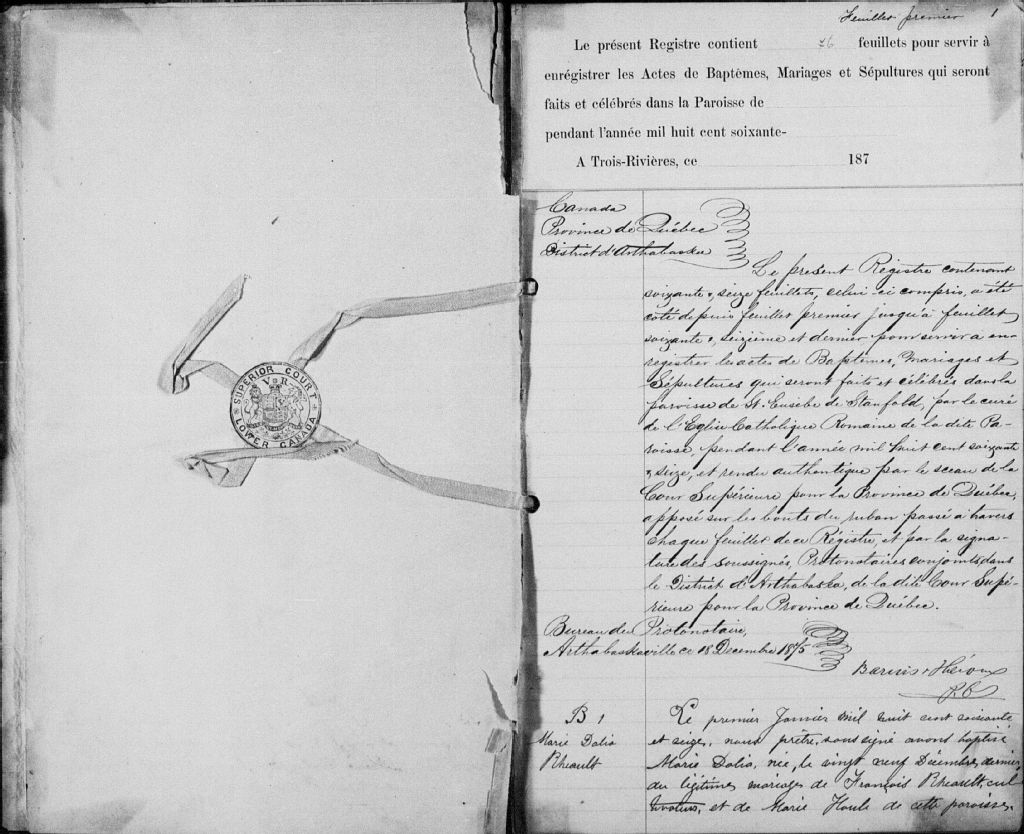 SUPERIOR COURT
V R
LOWER CANADA
Feuillet premier 1
Le présent Registre contient 76 feuillets pour servir à
enrégistrer les Actes de Baptêmes, Mariages et Sépultures qui seront
faits et célébrés dans la Paroisse de
pendant l'année mil huit cent soixante-
A Trois-Rivières, ce 187
Canada
Province de Québec
District d'Arthabaska
Le présent Régistre contenant
soixante & seize feuillets, celui-ci compris, a été
coté depuis feuillet premier jusqu'à feuillet
soixante & seizième et dernier pour servir à en-
registrer les actes de Baptêmes, Mariages et
Sépultures qui seront faits et célébrés dans la
paroisse de St. Eusèbe de Stanfold, par le curé
de l'Eglise Catholique Romaine de la dite Pa-
roisse, pendant l'année mil huit cent soixante
& seize, et rendu authentique par le sceau de la
Cour Supérieure pour la Province de Québec,
apposé sur les bouts du ruban passé à travers
chaque feuillet de ce Régistre, et par la signa-
ture des soussignés, Protonotaires conjoints dans
le District d'Arthabaska, de la dite Cour Supé-
rieure pour la Province de Québec.
Bureau du Protonotaire,
Arthabaskaville ce 18 Decembre 1875
Barwis & Héroux
P.C.
B 1
Marie Dalia
Rheault
Le premier Janvier mil huit cent soixante
et seize, nous prêtre, soussigné avons baptisé
Marie Dalia, née, le vingt neuf Décembre dernier
du légitime mariage de François Rheault, cul
tivateur, et de Marie Houle de cette paroisse.